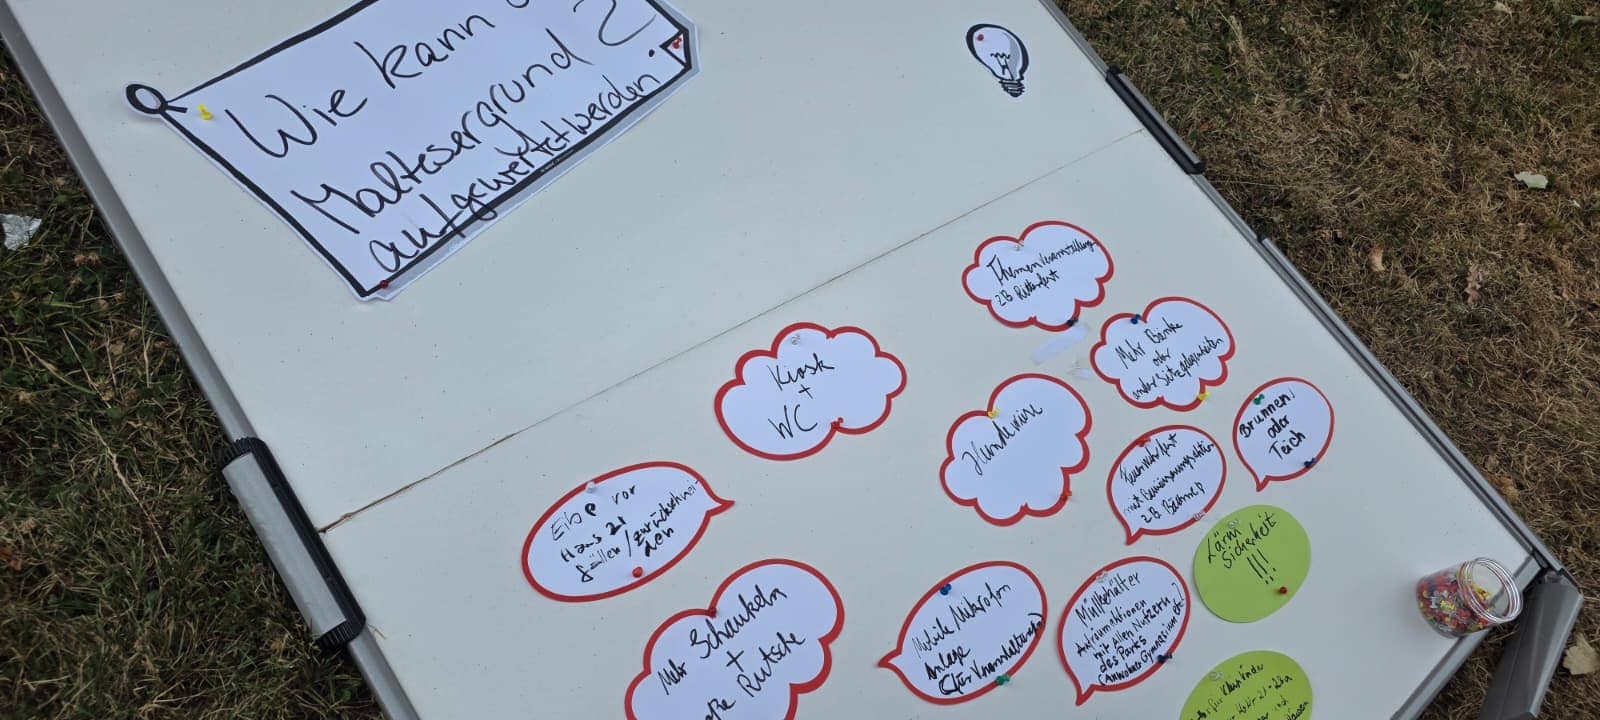 Wie kann
Maltesergrund
aufgewertet werden?
Themenveranstaltung
z.B. Ritterfest
Mehr Bänke
oder
Sitzgelegenheiten
Kiosk
+
WC
Hundewiese
Brunnen
oder
Teich
z.B.
Eibe vor
Haus 21
fällen/zurückschnei-
den
Lärm
Sicherheit
!!!
Mehr Schaukeln
+
Rutsche
Mobile Mikrofon
Anlage
(für Veranstaltungen)
Müllbehälter
Aufräumaktionen
mit Allen Nutzern
des Parks
(Anwohner Gymnasium etc.)
für Kleinkinder